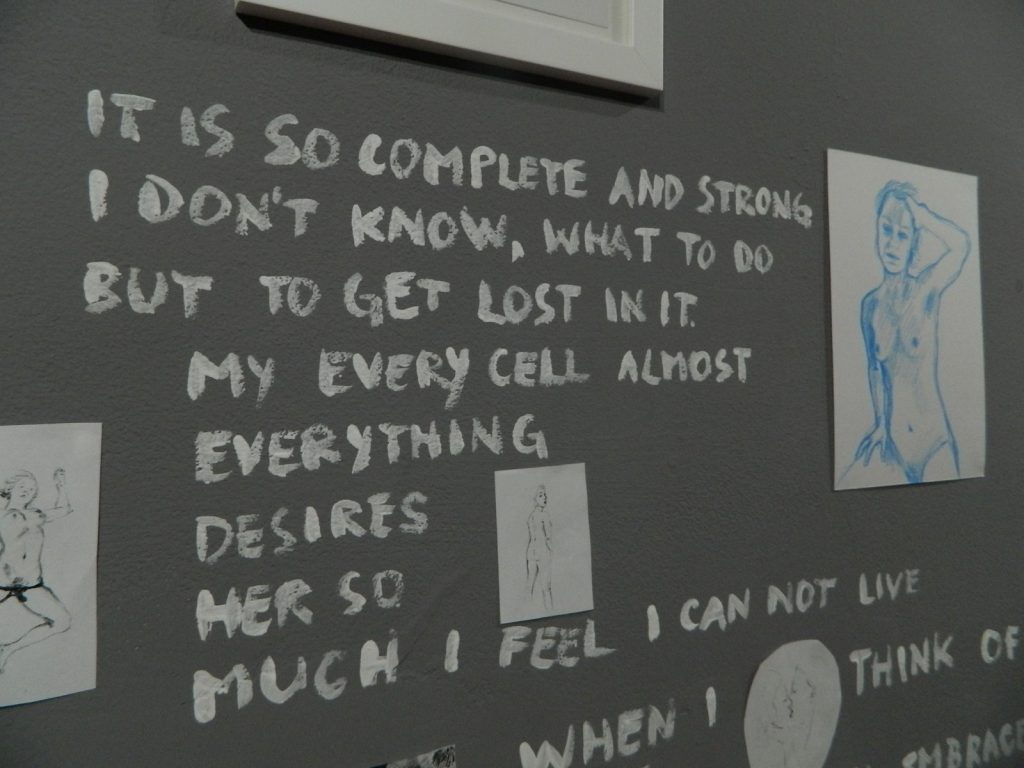 IT IS SO COMPLETE AND STRONG
I DON'T KNOW, WHAT TO DO
BUT TO GET LOST IN IT.
MY EVERY CELL ALMOST
EVERYTHING
DESIRES
HER SO
MUCH I FEEL I CAN NOT LIVE
WHEN I THINK OF
EMBRACE